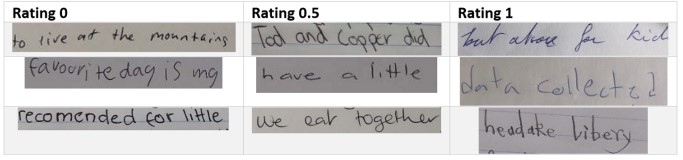 Rating 0 Rating 0.5 Rating 1
to live at the mountains Tod and Copper did but above for kid
favourite day is my have a little data collected
recomended for little we eat together headake libery